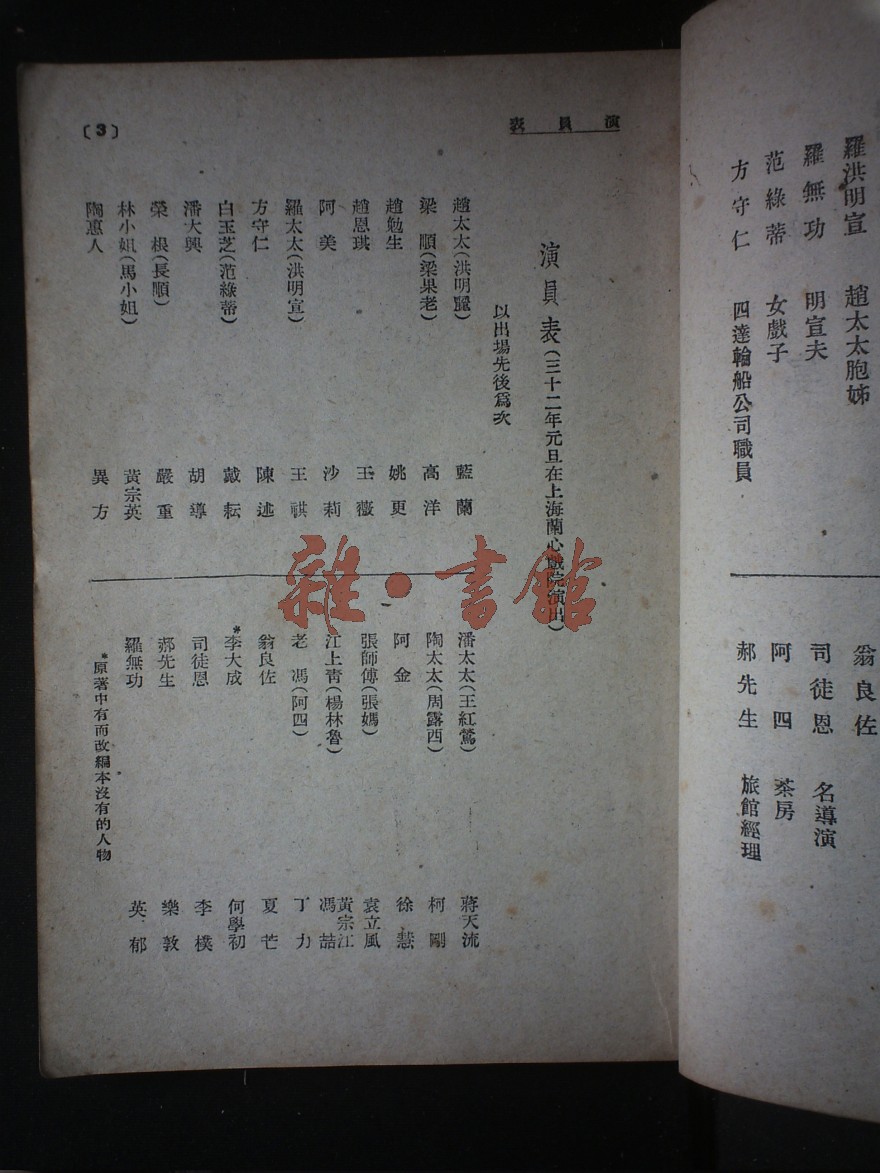 羅洪明宣 趙太太胞姊
羅無功 明宣夫
范綠蒂 女戲子
方守仁 四達輪船公司職員
翁良佐
司徒恩 名導演
阿四 茶房
郝先生 旅館經理
演員表
〔3〕
演員表(三十二年元旦在上海蘭心戲院演出)
以出場先後為次
趙太太(洪明靨) 藍蘭
梁順(梁果老) 高洋
趙勉生 姚更
趙恩琪 王薇
阿美 沙莉
羅太太(洪明宣) 王祺
方守仁 陳述
白玉芝(范綠蒂) 戴耘
潘大興 胡導
榮根(長順) 嚴重
林小姐(馬小姐) 黃宗英
陶惠人 異方
潘太太(王紅鶯) 蔣天流
陶太太(周露西) 柯剛
阿金 徐慧
張師傅(張媽) 袁立風
江上青(楊林魯) 黃宗江 馮喆
老馮(阿四) 丁力
翁良佐 夏芒
*李大成 何學初
司徒恩 李樸
郝先生 樂敦
羅無功 英郁
*原著中有而改編本沒有的人物
雜·書館